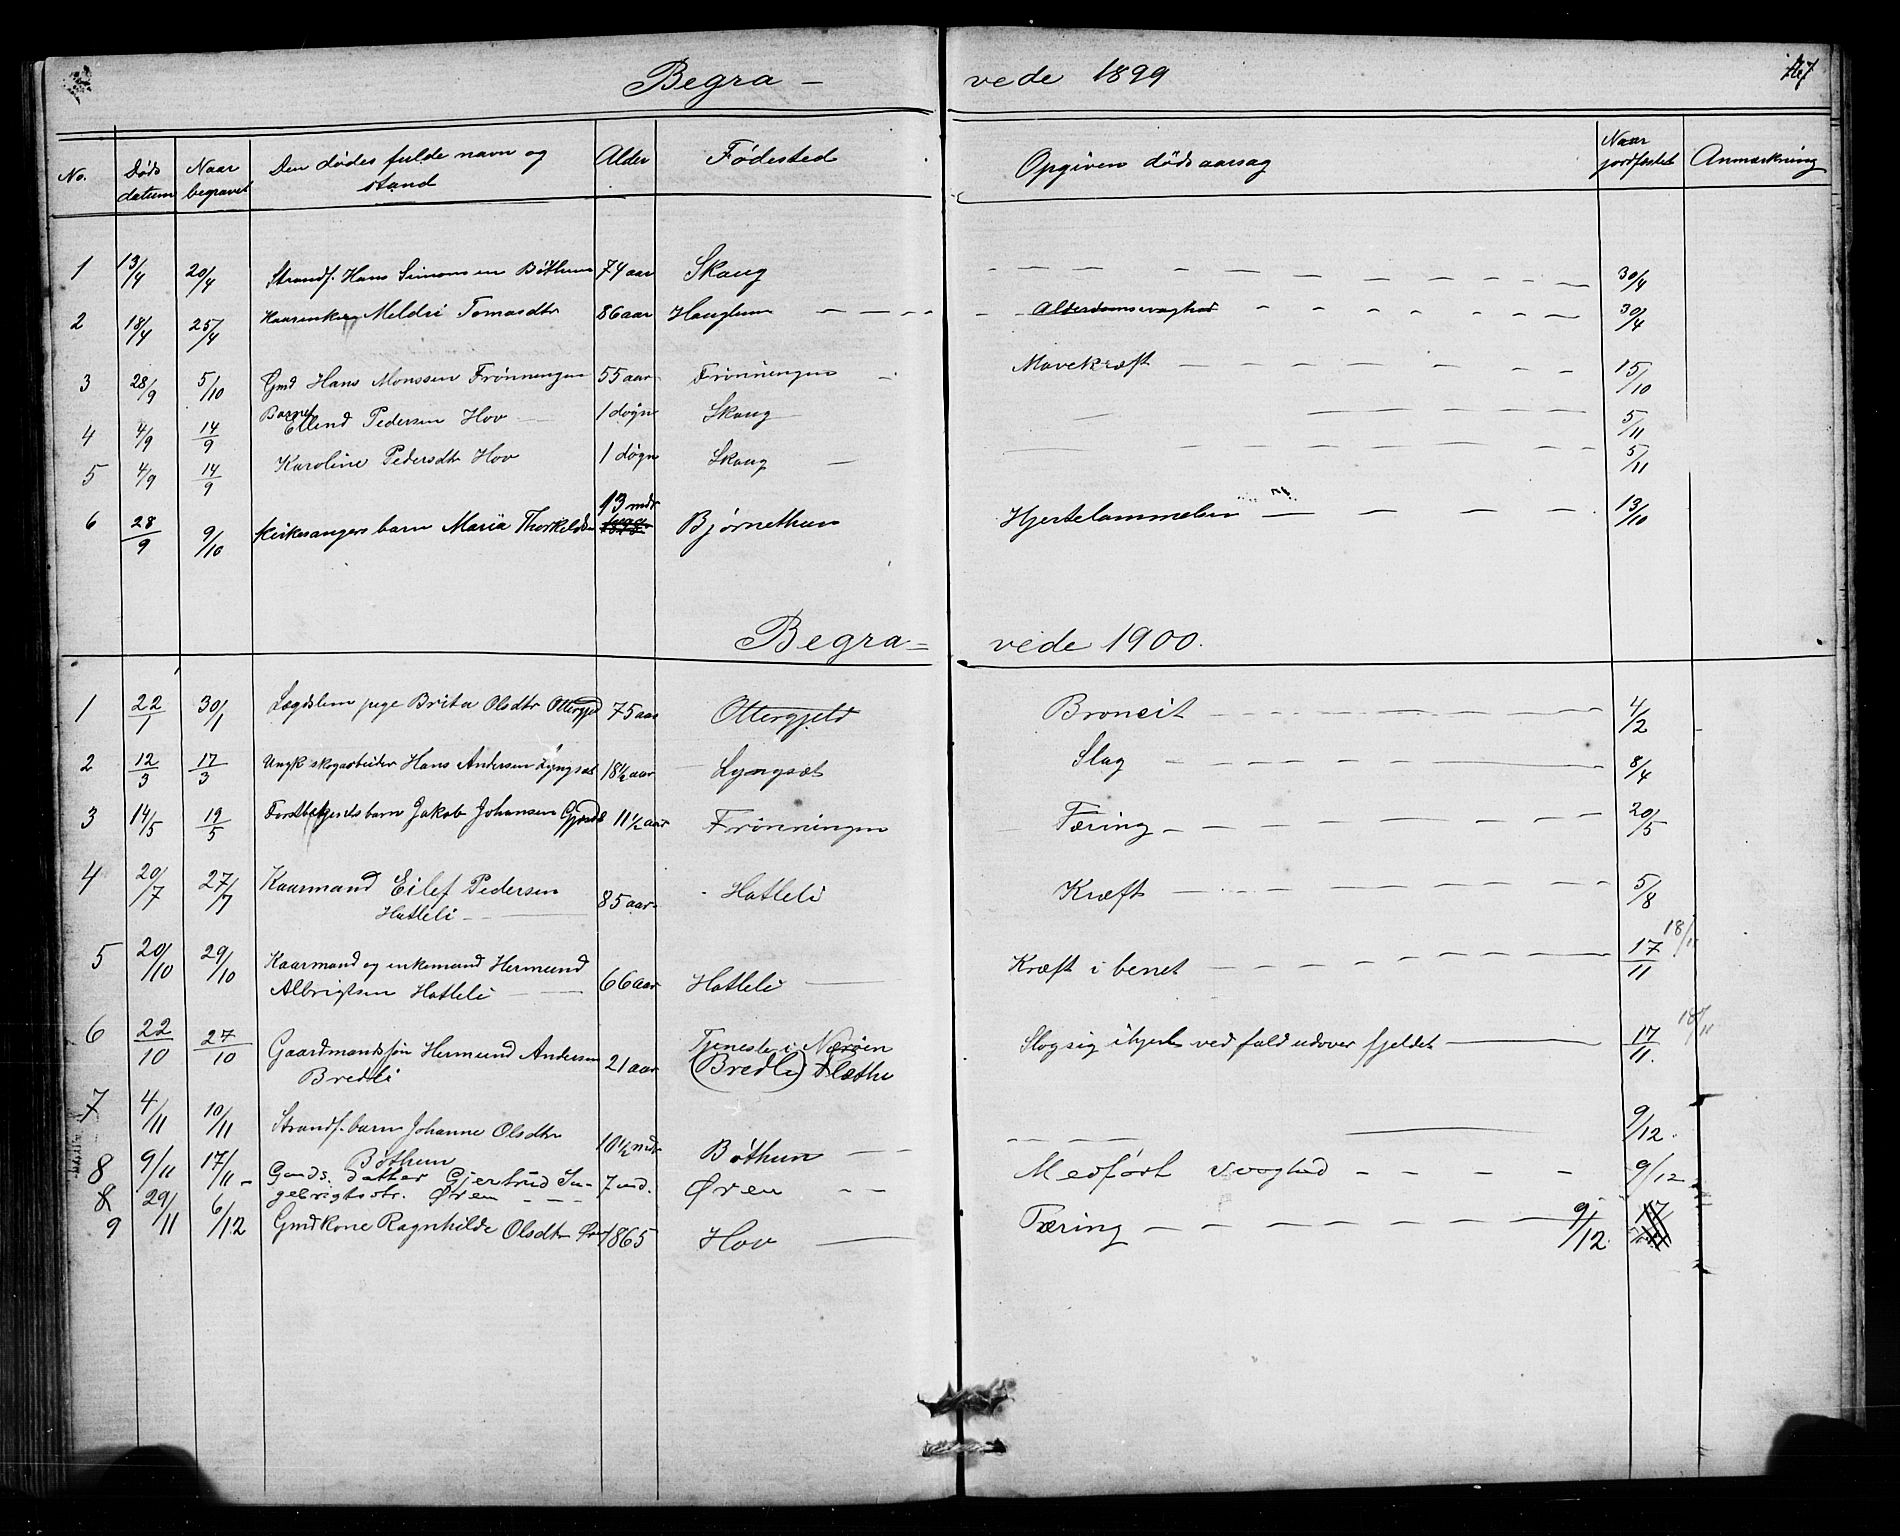 Begra - vede 1899
No. Døds datum Naar begravet Den dødes fulde navn og stand Alder Fødested Opgiven dødsaarsag Naar jordfestet Anmærkning
1 13/4 20/4 Strandf. Hans Simonsen Bøthun 74 aar Skaug - - - 30/4
2 18/4 25/4 Meldri Tomasdtr 86 aar Hauglum - - - Alderdomssvaghed - - - 30/4
3 28/9 5/10 Gmd Hans Monssen Frønningen 55 aar Frønningen - Mavekræft - - - 15/10
4 4/9 14/9 Barnet Ellend Pedersen Hov 1 døgn Skaug - - - 5/11
5 4/9 14/9 Karoline Pedersdtr Hov 1 døgn Skaug - - - 5/11
6 28/9 9/10 Kirkesangers barn Maria Thorkildsen 13 mdr Bjørnethun Hjertelammelse - - - 13/10
Begra= vede 1900.
1 22/1 30/1 Lægdslem pige Brita Olsdtr Ottergjeld 75 aar Ottergjeld Broncit - - - 4/2
2 12/3 17/3 Ungk. skogarbeider Hans Andersen Lyngsæt 18½ aar Lyngsæt Slag - - - 8/4
3 14/5 19/5 Forstbetjents barn Jakob Johansen 11½ aar Frønningen Tæring - - - 20/5
4 20/7 27/7 Kaarmand Eilef Pedersen 85 aar Hatleli Kræft - - - 5/8
Hatleli
5 20/10 29/10 Kaarmand og enkemand Hermund 66 aar Hatleli Kræft i benet - - - 17/11 18/11
Albrigtsen Hatleli
6 22/10 27/10 Gaardmandsføn Hermund Andersen 21 aar Tjeneste i Nærøen Slog sig ihjel ved fald udover fjeldet 17/11. 18/11
Bredli (Bredli) Flæthe
7 4/11 10/11 Strandf. barn Johanne Olsdtr 10½ mdr Bøthun - - - 9/12.
Bøthun
8 9/11 17/11 - Gmds. datter Gjertrud In- 7 md. Øren - - Medført svaghed - - - 9/12
gebrigtsdtr. Øren - - -
8 9 29/11 6/12 Gmdkone Ragnhilde Olsdtr 1865 Hov Tæring - - - 9/12